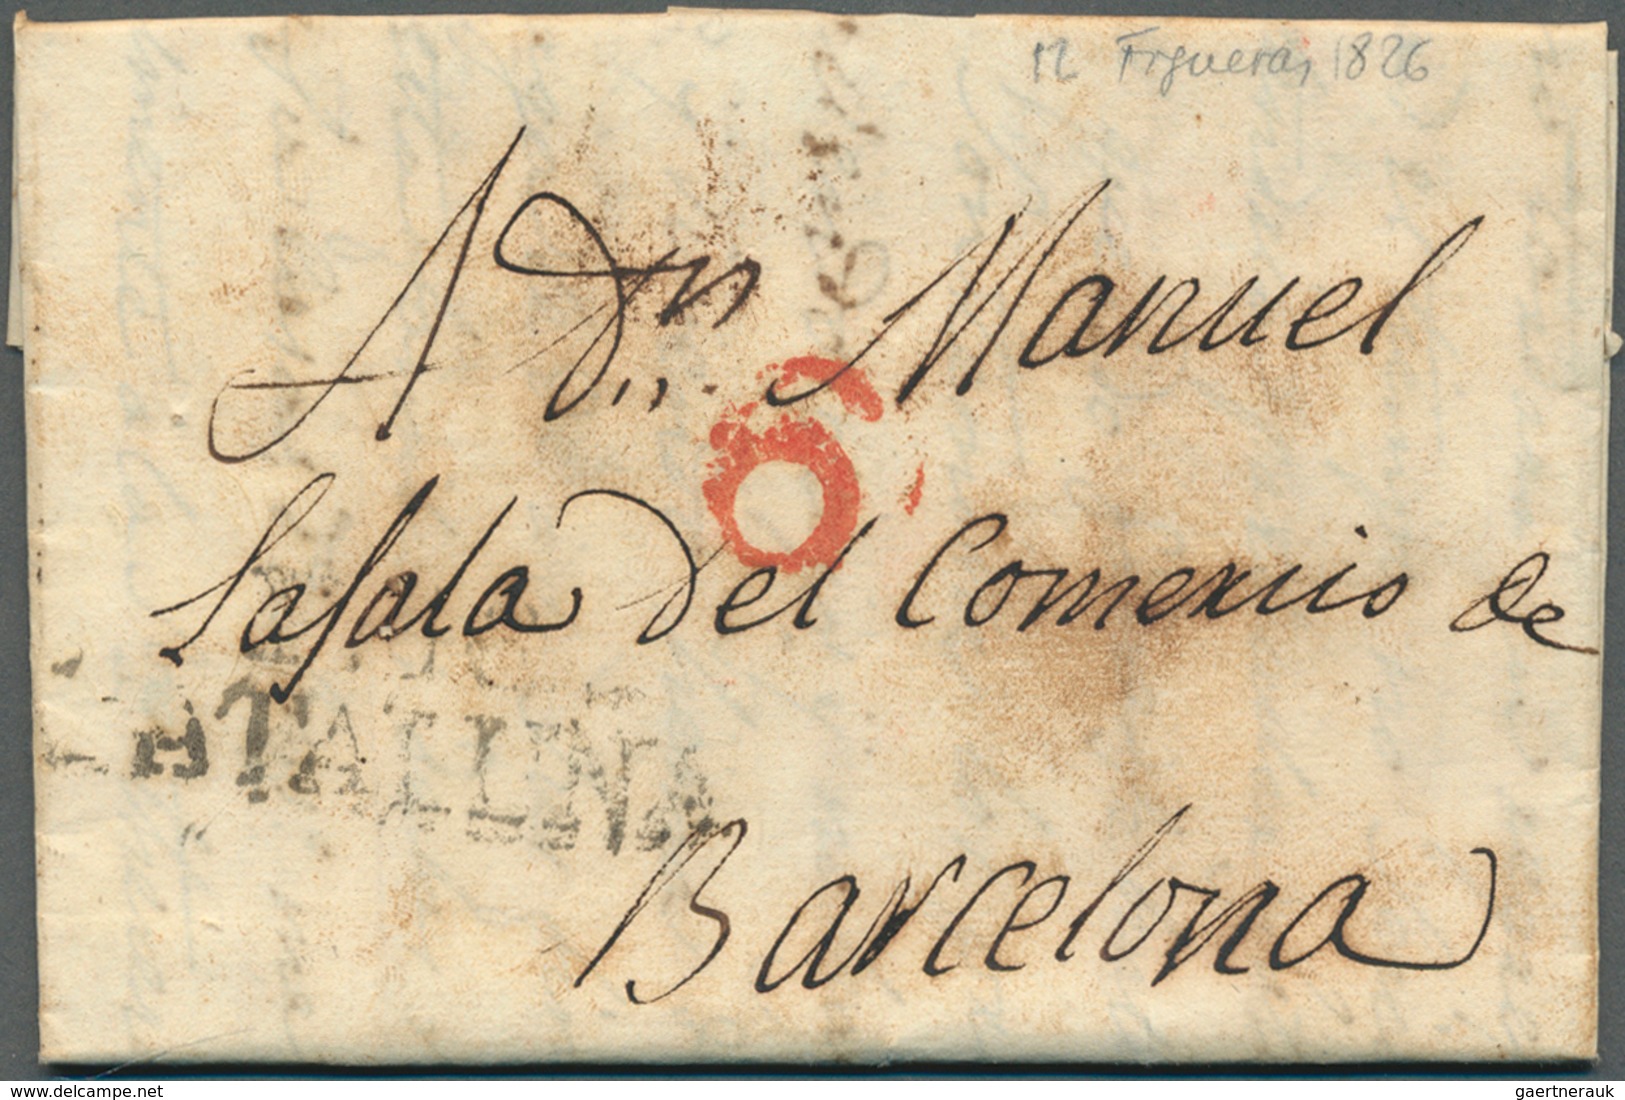 12 Figueras 1826
A Dn. Manuel
6
Lasala del Comerciio de
ATALUNA
Barcelona
www.delcampe.net
gaertnerauk